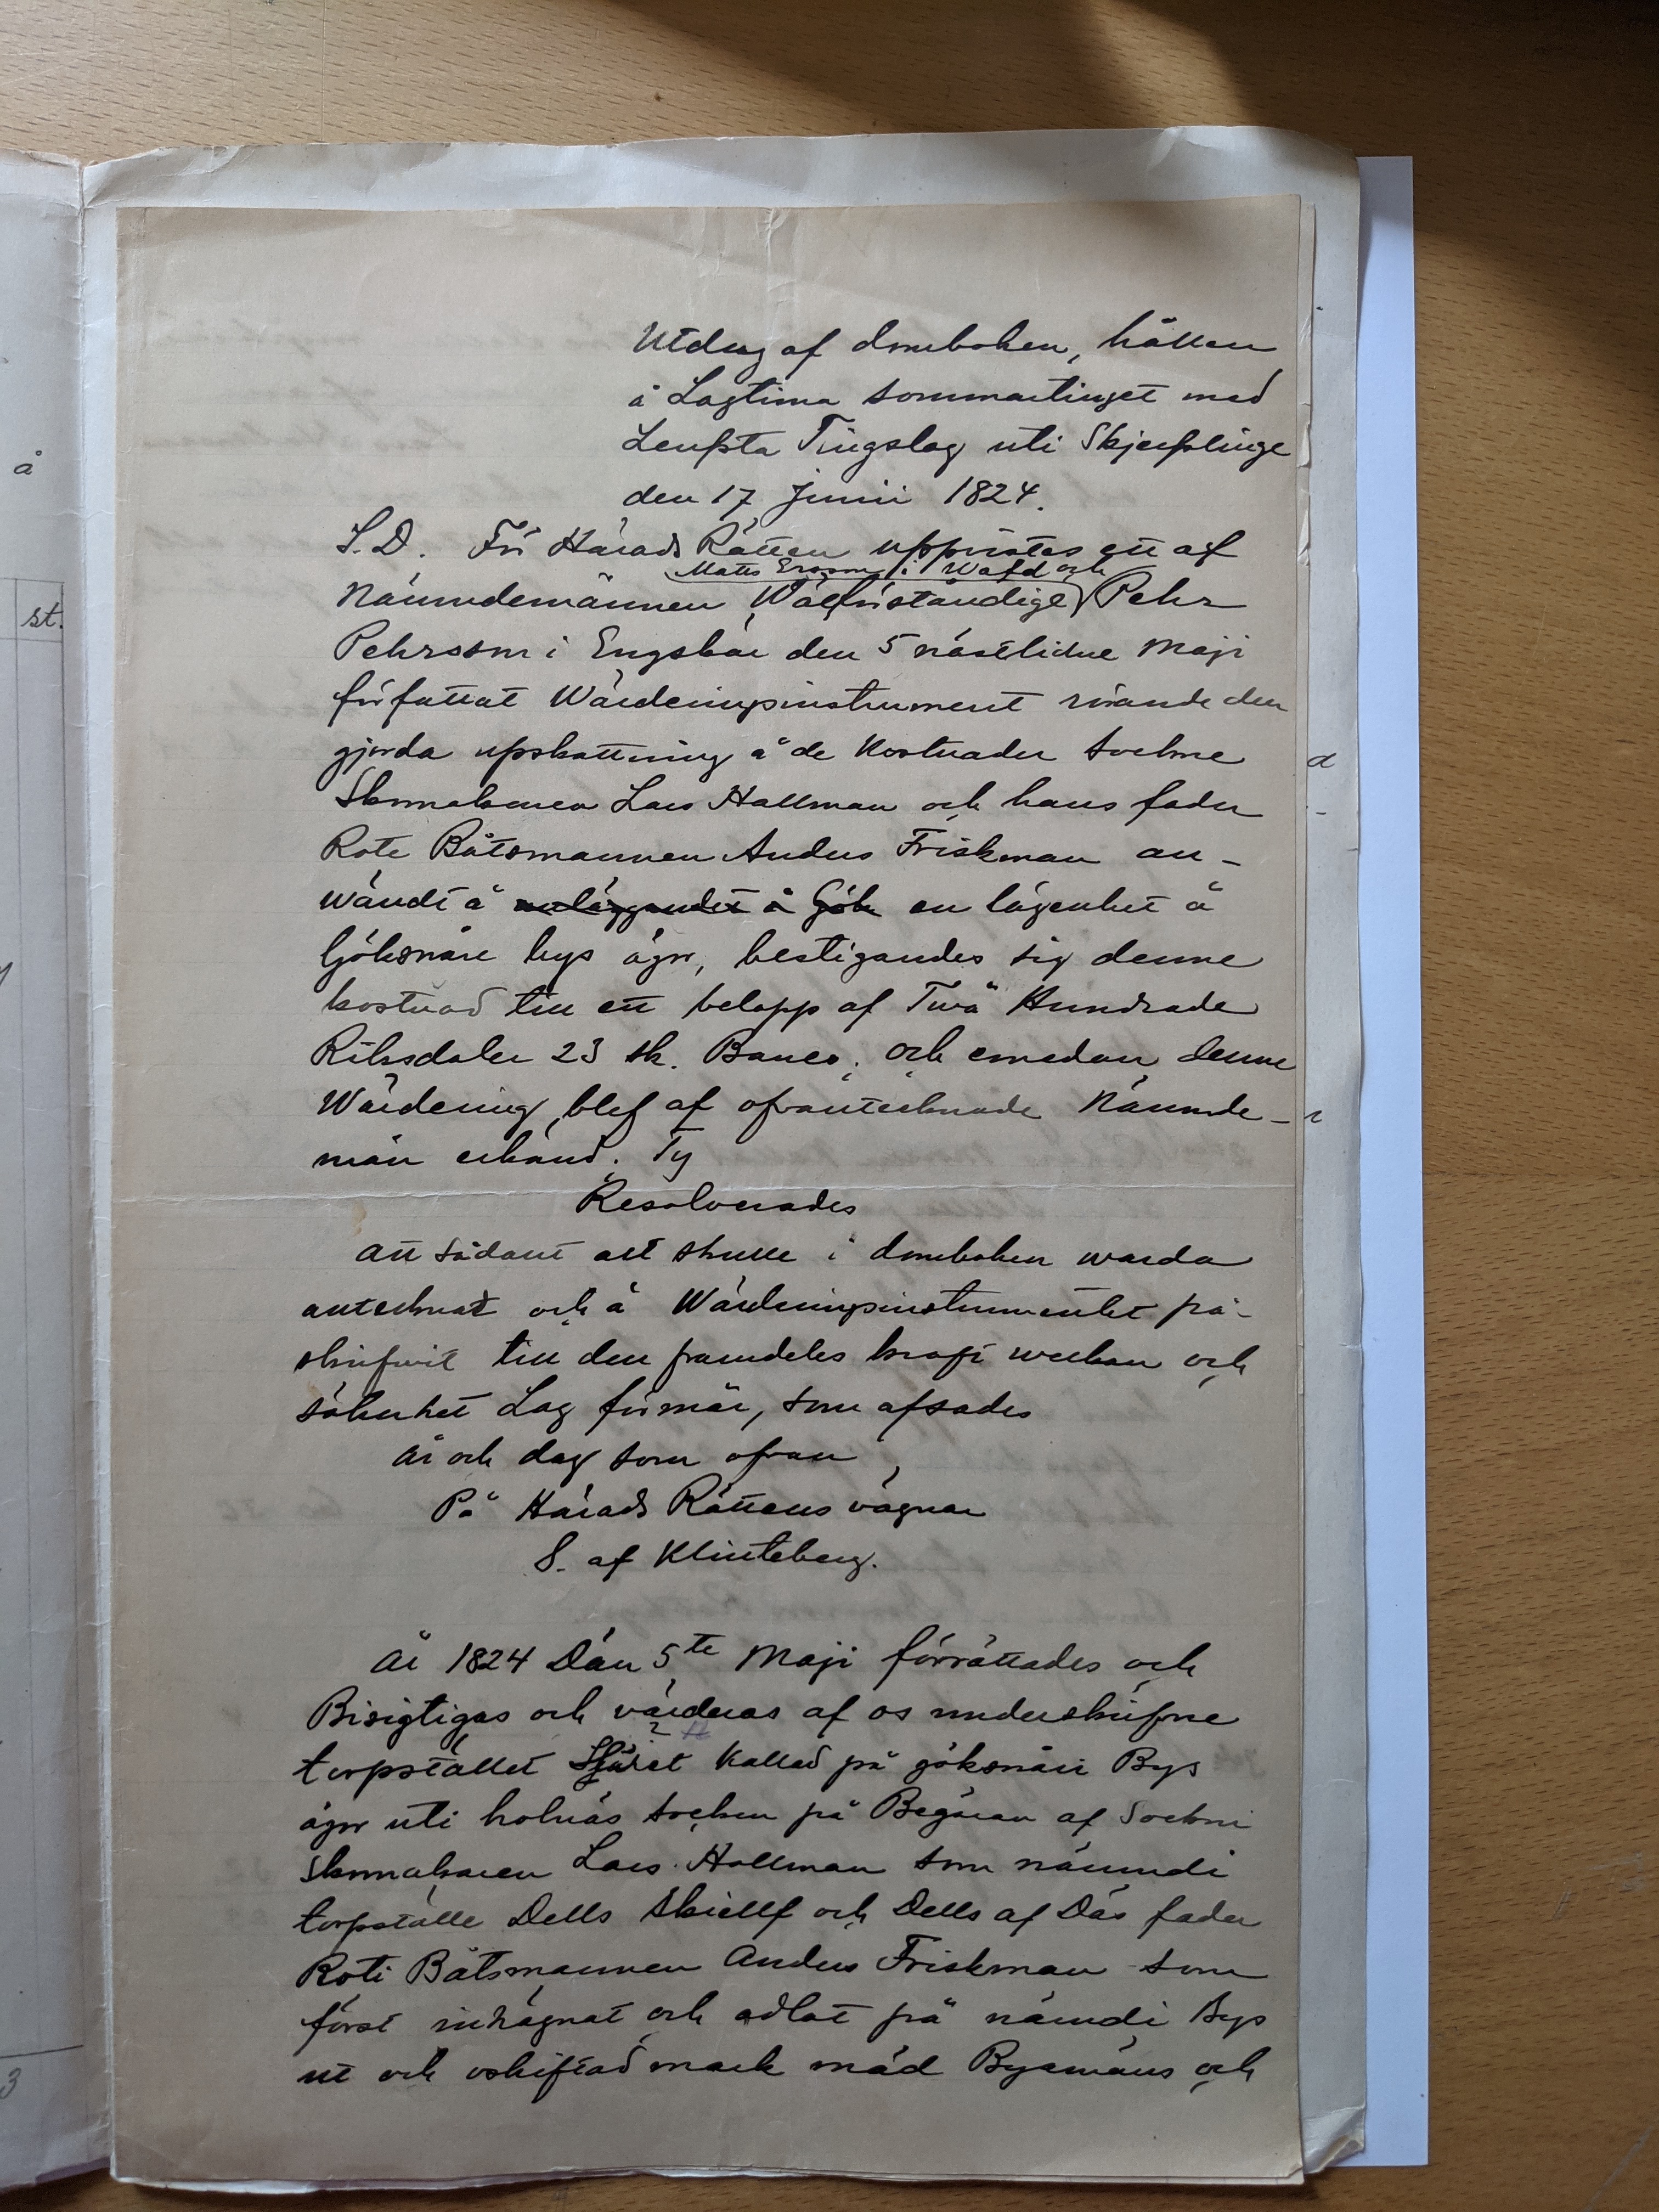 Utdrag af domboken, hållen
å Lagtima sommartinget med
Leufsta Tingslag uti Skjerplinge
den 17 Junii 1824.
S.D. För Härads Rätten uppvistes ett af
Matts Ersson i Wafd och
Nämndemännen Wälförståndige Pehr
Pehrsson i Engskär den 5 nästlidne Maji
författat Wärderingsinstrument rörande den
gjorda upskattning å de Kostnader Sockne
Skomakaren Lars Hallman och hans fader
Rote Båtsmannen Anders Friskman an-
wändt å anläggandet å Gök en lägenhet å
Göksnåre bys ägor, bestigandes sig denne
kostnad till ett belopp af Twå Hundrade
Riksdaler 23 sk. Banco; och emedan denne
Wärdering blef af ofvantecknade Nämnde-
män erkänd. Ty
Resolverades
att sådant allt skulle i domboken warda
antecknat och å Wärderingsinstrumentet på-
skrifwit till den framdeles kraft werkan och
säkerhet Lag förmår, som afsades
År och dag som ofvan
På Härads Rättens vägnar
S. af Klinteberg.
År 1824 Dän 5te Maji förrättades och
Bisigtigas och värderas af os underskrifne
torpstället kallad på göksnåri Bys
ägor uti holnäs socken på Begäran af Sockni
Skomakaren Lars Hallman som nämndi
torpställe Dells Skiellf och Dells af Däs fader
Roti Båtsmannen Anders Friskman som
först inhägnat och odlat på nämdi Bys
ut och oskiftad mark mäd Bysmäns och
å
st.
3
d
-
r